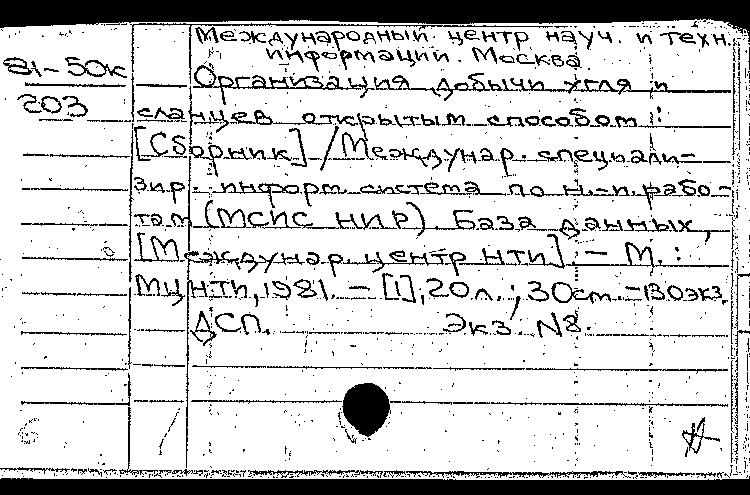 Международный центр науч. и техн.
информации. Москва.
81-50к
Организация добычи угля и
203
сланцев открытым способом :
[Сборник] / Междунар. специали-
зир. информ. система по н.-т. рабо-
там (МСИС НИР). База данных,
[Междунар. центр НТИ]. - М. :
МЦНТИ, 1981. - [1], 20 л. ; 30 см. - 130 экз.
ДСП. Экз. N8.